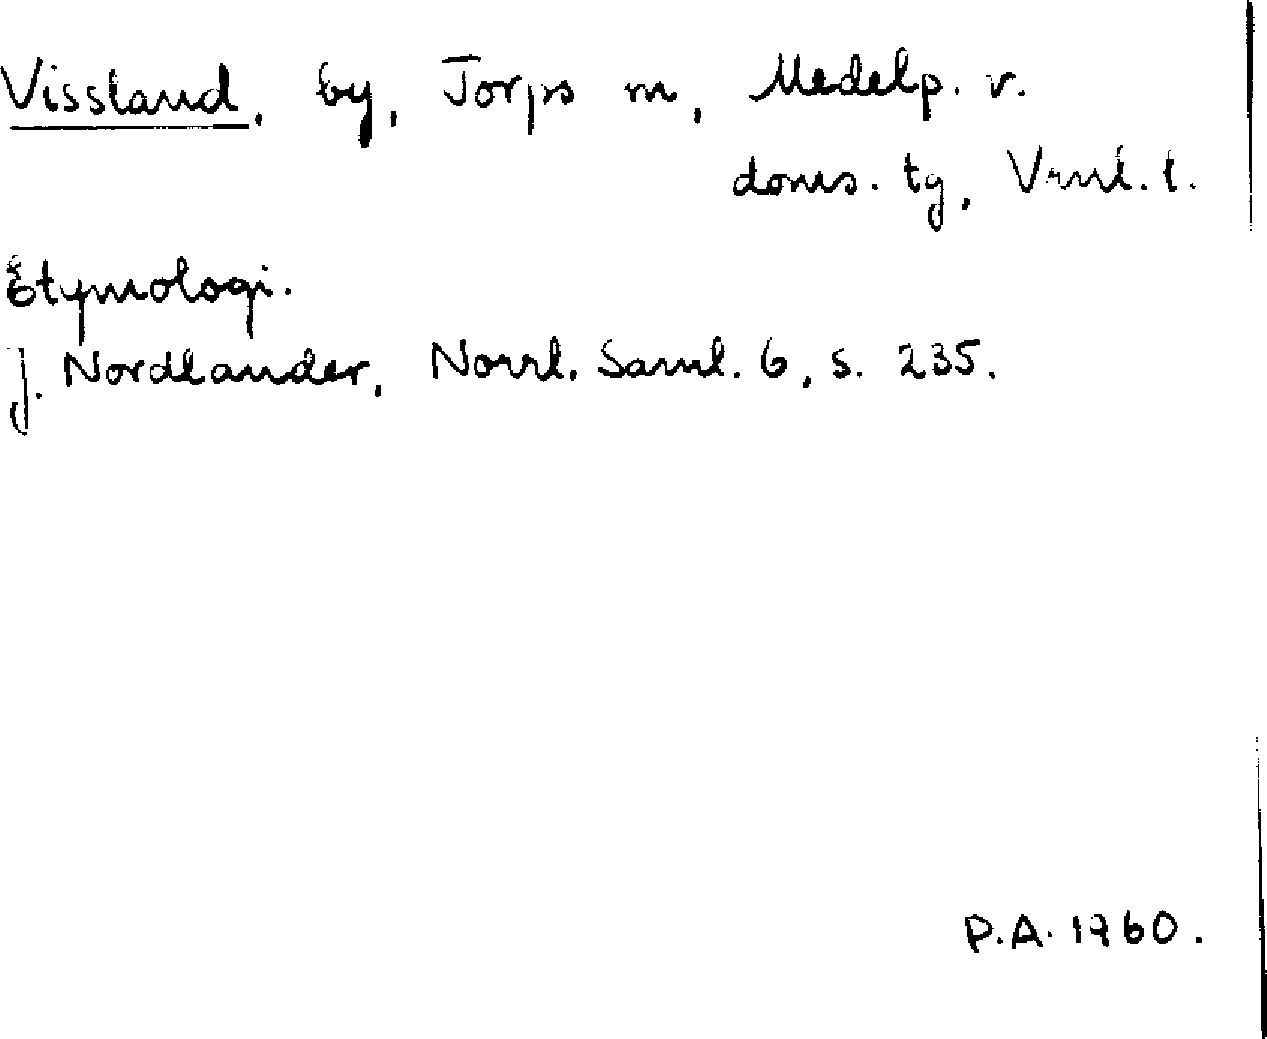 Vissland, by, Torps sn, Medelp. v.
doms. tg, Vrnl. l.
Etymologi.
J. Nordlander, Norrl. Saml. 6, s. 235.
P.A. 1960.